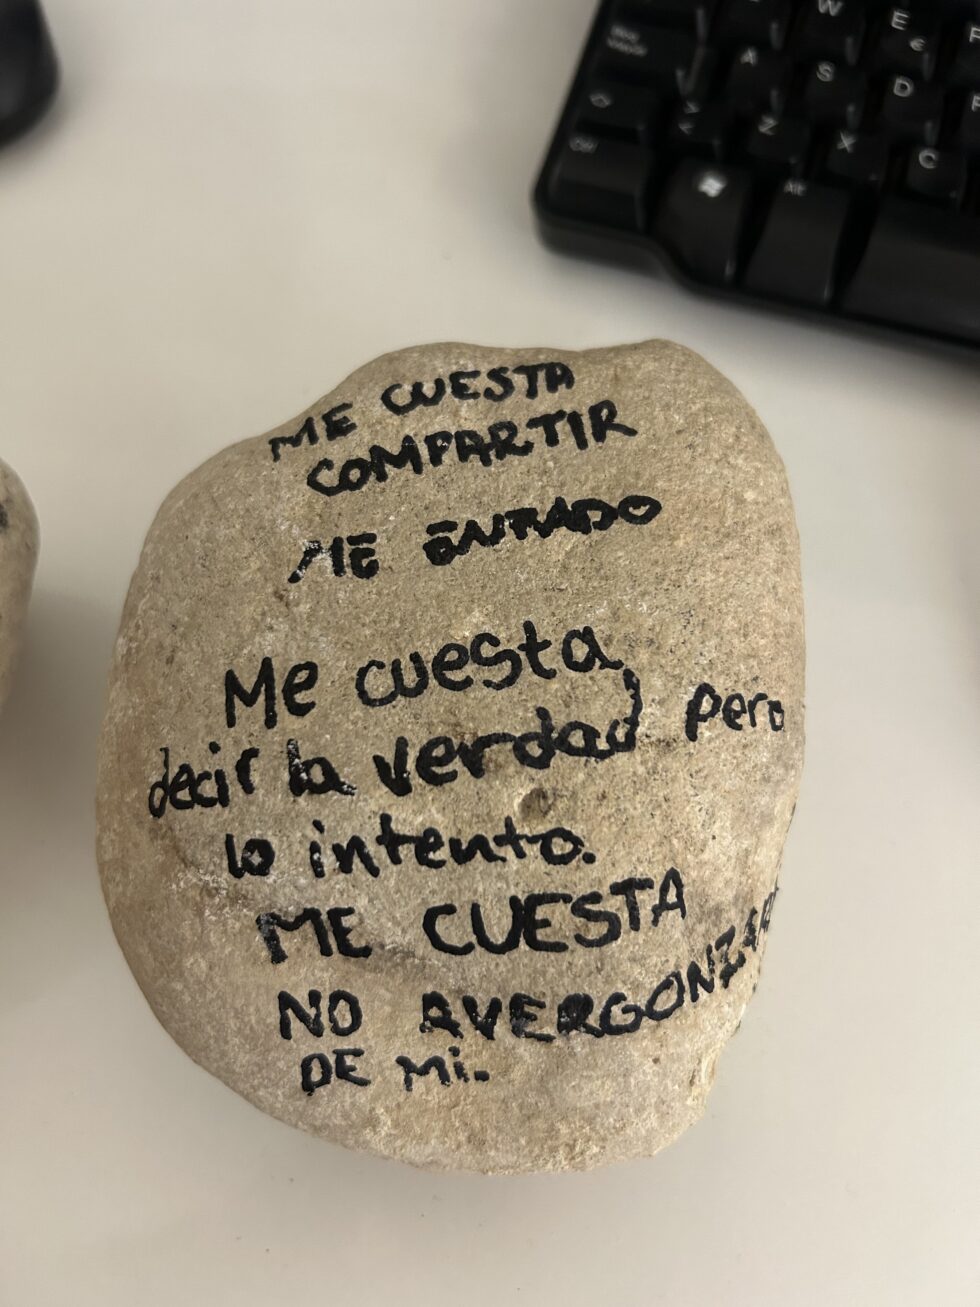 ME CUESTA
COMPARTIR
ME ENFADO
Me cuesta
decir la verdad pero
lo intento.
ME CUESTA
NO AVERGONZAR
DE MI.
W E
A S D
Z X C
Alt
€